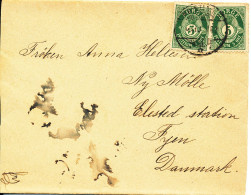 5 5
Fröken Anna Hellesen
Ny Mölle
Elested station
Fyen
Danmark.